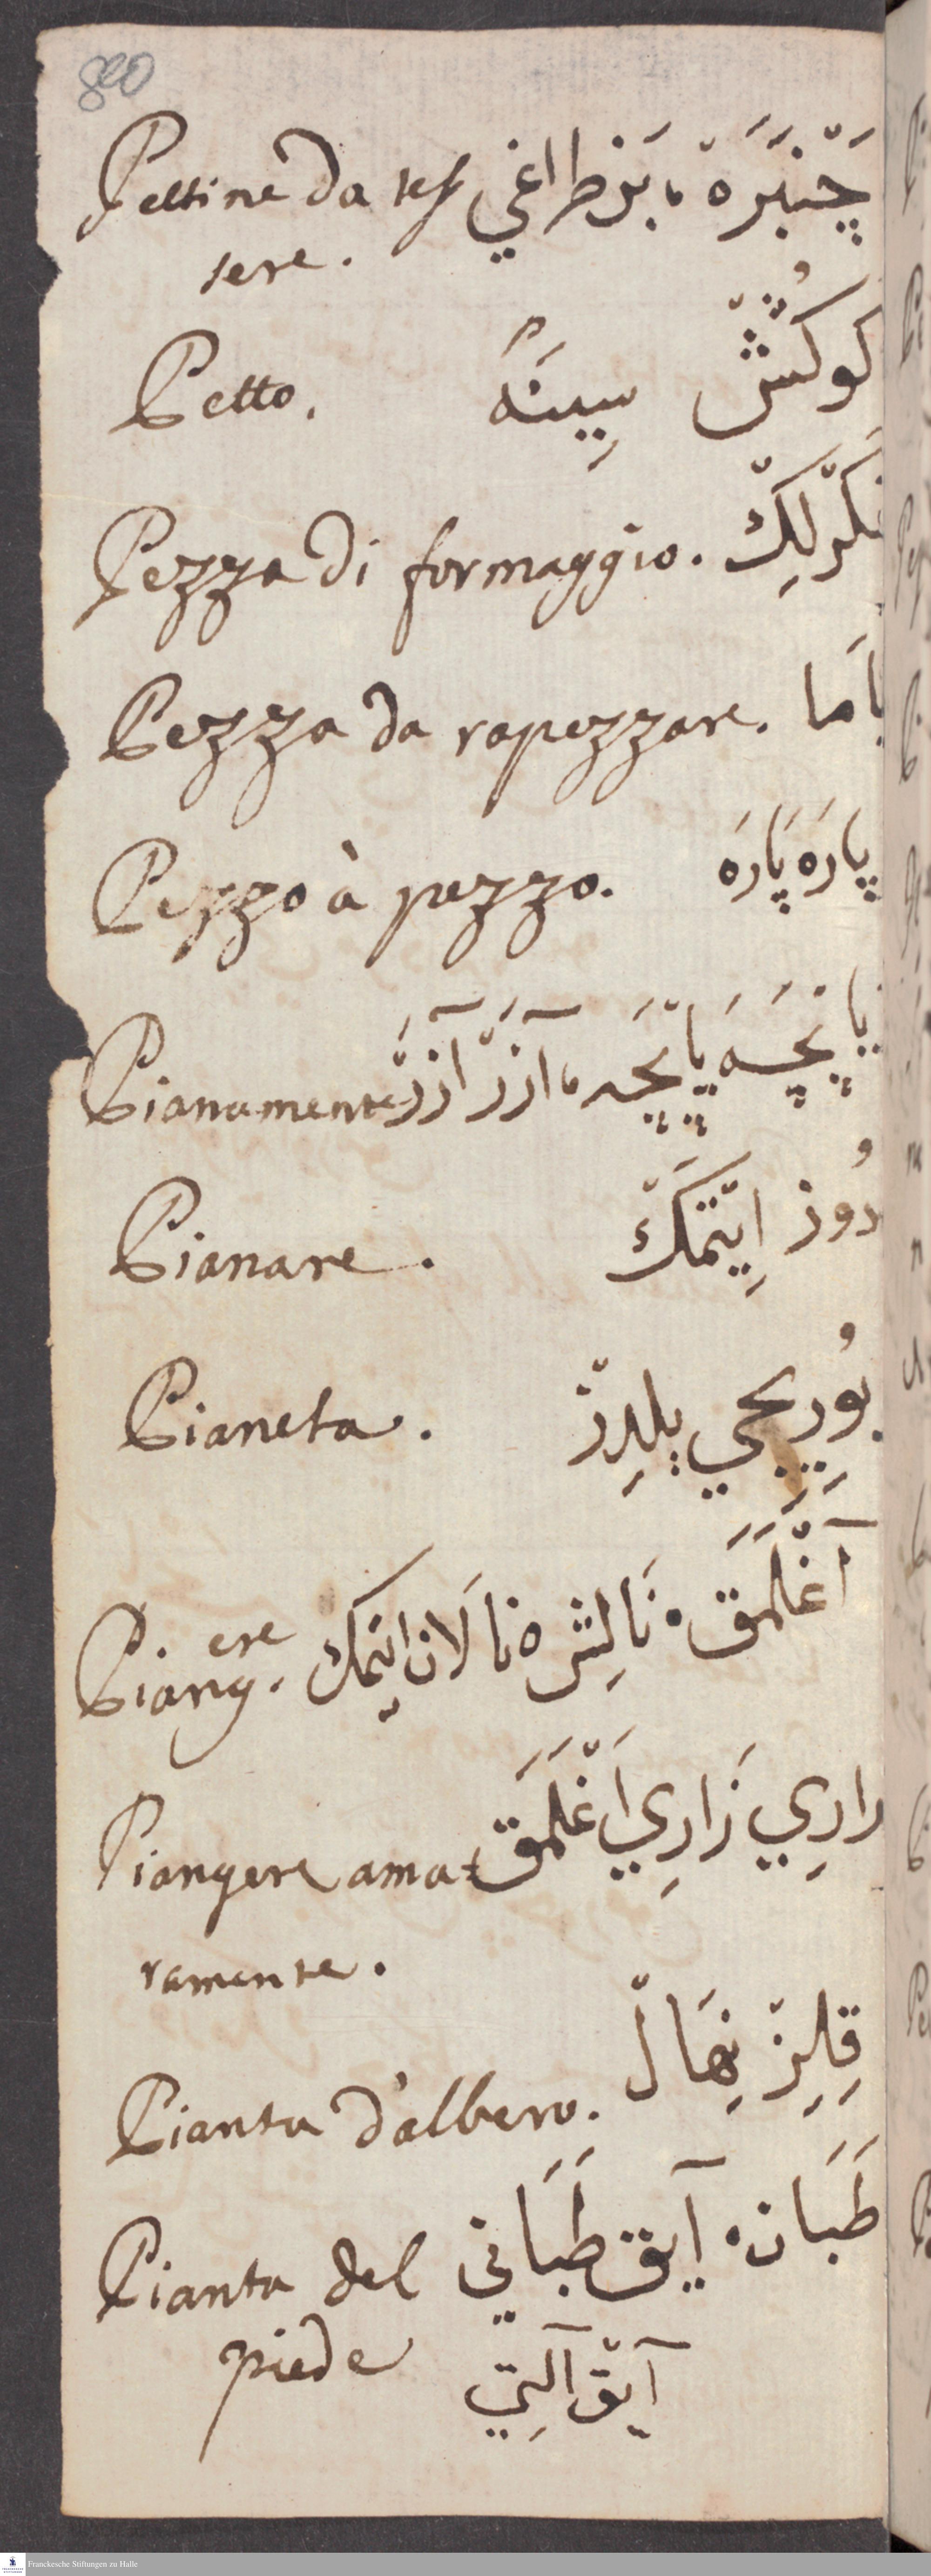 800
Pettine da tes چَنْبَرَهْ ، بَزْ طراغي
sere.
Petto. كوكُسْ سِينَهٔ
Pezza di formaggio. تكَرْلِكْ
Pezza da rapezzare. ياَما
Pezzo à pezzo. پارَه پَارَه
Pianamente آزَرْ آزَرْ
Pianare. دُوز اِيتْمَكْ
Pianeta. يُورِيجي يِلدِزْ
ere
Piang. آغْلَمَق ، نَالِش ، نَا لَان ايتمَك
Piangere ama= زارِي زَارِي اَغْلَمَق
ramente.
Pianta d'albero. نِهَالْ
Pianta del طَبَان ، آيق طَبَانِي
piede آيَقْ آلتِي
Franckesche Stiftungen zu Halle